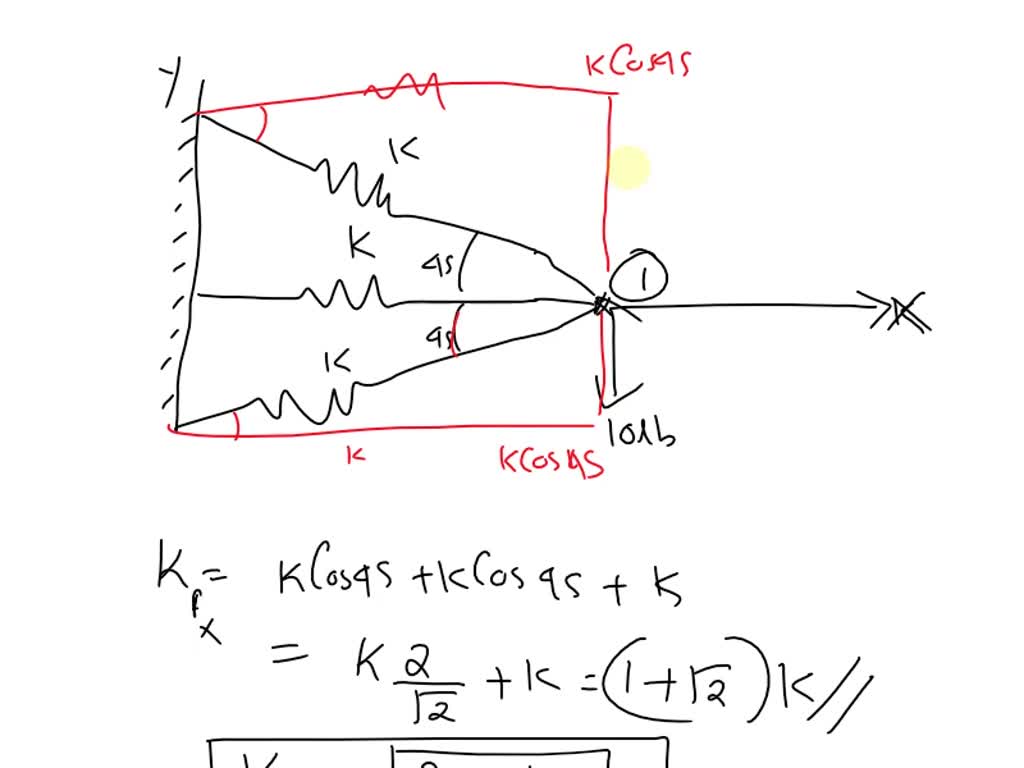 Y
K Cos45
K
K
45
1
X
45
K
10lb
K
K Cos45
K = K Cos45 + K Cos 45 + K
P
x
= K 2/√2 + K = (1+√2) K //
K